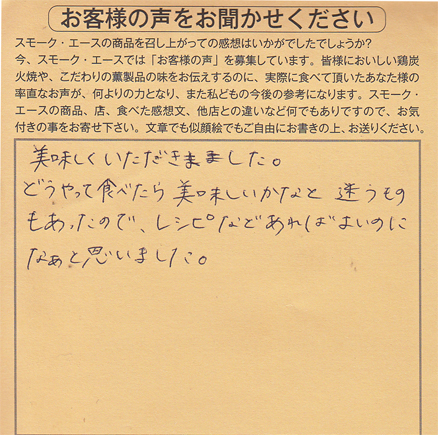 お客様の声をお聞かせください
スモーク・エースの商品を召し上がっての感想はいかがでしたでしょうか?
今、スモーク・エースでは「お客様の声」を募集しています。皆様においしい鶏炭
火焼や、こだわりの薫製品の味をお伝えするのに、実際に食べて頂いたあなた様の
率直なお声が、何よりの力となり、また私どもの今後の参考になります。スモーク・
エースの商品、店、食べた感想文、他店との違いなど何でもありですので、お気
付きの事をお寄せ下さい。文章でも似顔絵でもご自由にお書きの上、お送りください。
美味しくいただきました。
どうやって食べたら美味しいかなと 迷うもの
もあったので、レシピなどあればよいのに
なぁと思いました。